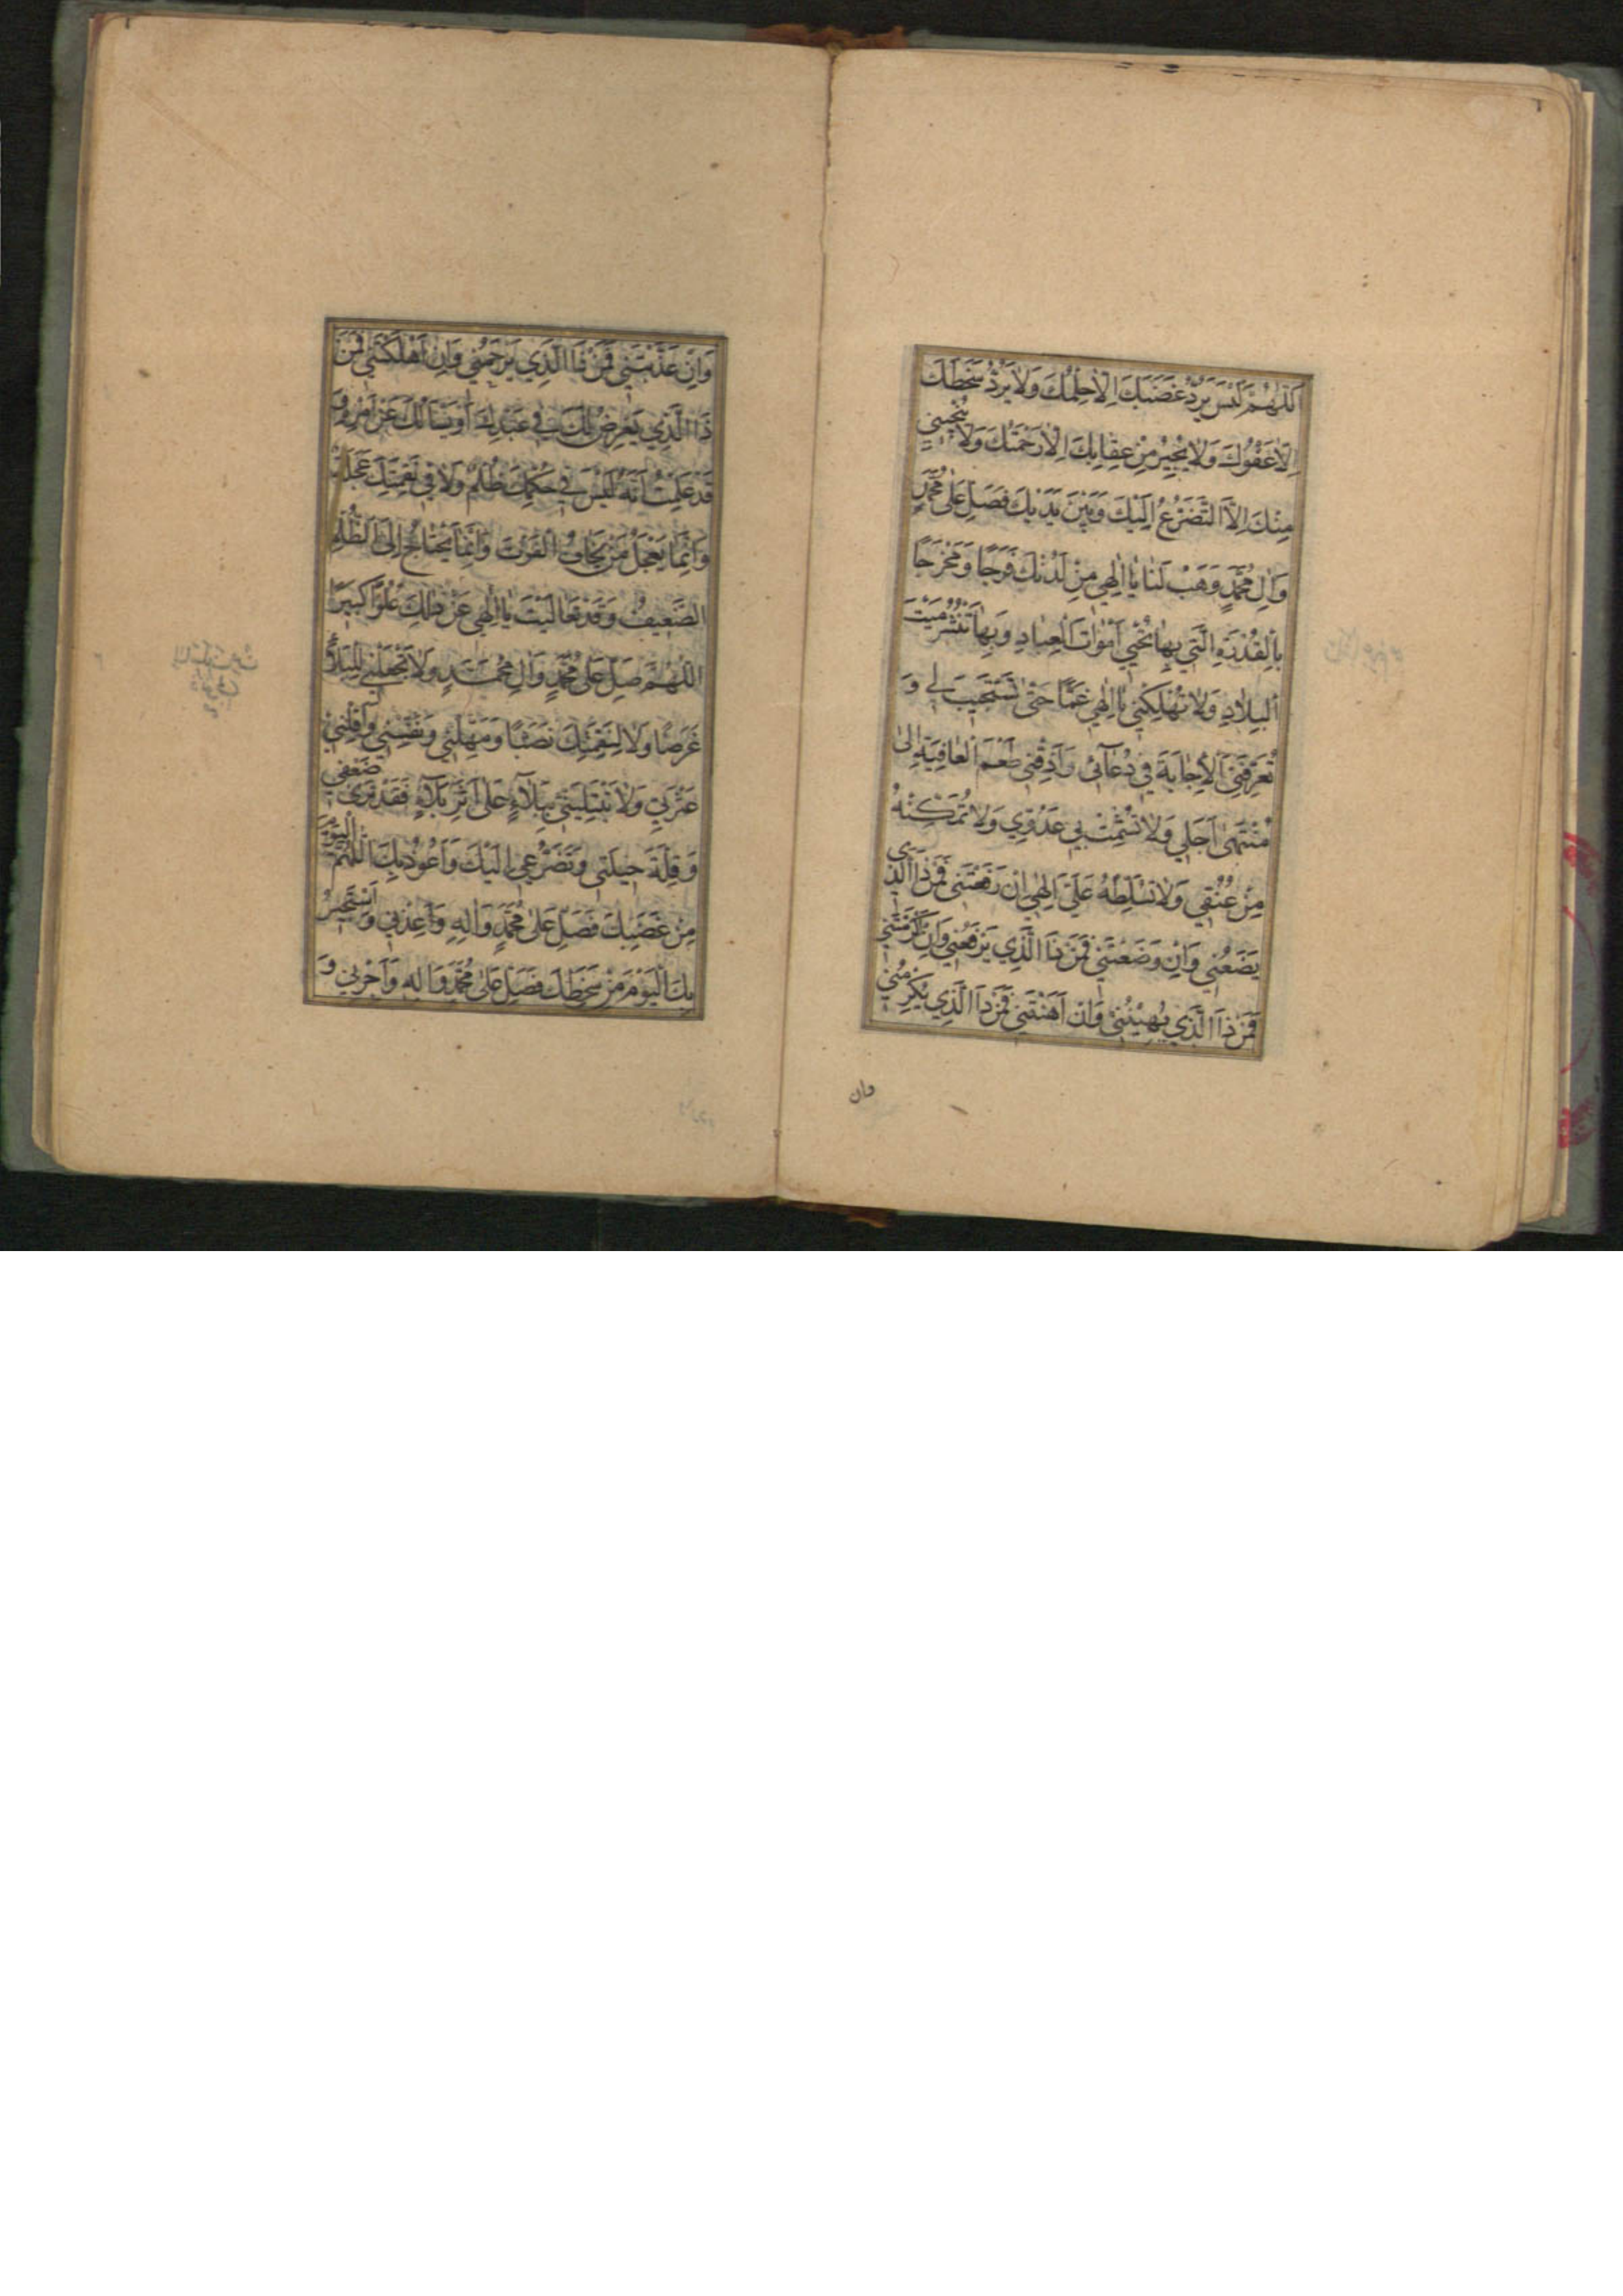 اَللّٰهُمَّ لَيْسَ يَرُدُّ غَضَبَكَ اِلّاٰ حِلْمُكَ وَلاٰ يَرُدُّ سَخَطَكَ
اِلّاٰ عَفْوُكَ وَلاٰ يُجِيْرُ مِنْ عِقٰابِكَ اِلّاٰ رَحْمَتُكَ وَلاٰ يُنْجِيْنِي
مِنْكَ اِلاَّ التَّضَرُّعُ اِلَيْكَ وَبَيْنَ يَدَيْكَ فَصَلِّ عَلٰى مُحَمَّدٍ
وَاٰلِ مُحَمَّدٍ وَهَبْ لَنٰا يٰا اِلٰهِي مِنْ لَدُنْكَ فَرَجًا وَمَخْرَجًا
بِالْقُدْرَةِ الَّتِي بِهٰا تُحْيِي اَمْوٰاتَ الْعِبٰادِ وَبِهٰا تَنْشُرُ مَيْتَ
الْبِلاٰدِ وَلاٰ تُهْلِكْنِي يٰا اِلٰهِي غَمًّا حَتّٰى تَسْتَجِيبَ لِي وَ
تُعَرِّفَنِي الْاِجٰابَةَ فِي دُعٰآئِي وَاَذِقْنِي طَعْمَ الْعٰافِيَةِ اِلىٰ
مُنْتَهىٰ اَجَلِي وَلاٰ تُشْمِتْ بِي عَدُوِّي وَلاٰ تُمَكِّنْهُ
مِنْ عُنُقِي وَلاٰ تُسَلِّطْهُ عَلَيَّ اِلٰهِي اِنْ رَفَعْتَنِي فَمَنْ ذَا الَّذِي
يَضَعُنِي وَاِنْ وَضَعْتَنِي فَمَنْ ذَا الَّذِي يَرْفَعُنِي وَاِنْ اَكْرَمْتَنِي
فَمَنْ ذَا الَّذِي يُهِيْنُنِي وَاِنْ اَهَنْتَنِي فَمَنْ ذَا الَّذِي يُكْرِمُنِي
وان
وَاِنْ عَذَّبْتَنِي فَمَنْ ذَا الَّذِي يَرْحَمُنِي وَاِنْ اَهْلَكْتَنِي فَمَنْ
ذَا الَّذِي يَعْرِضُ لَكَ فِي عَبْدِكَ اَوْ يَسْاَلُكَ عَنْ اَمْرِهِ وَ
قَدْ عَلِمْتُ اَنَّهُ لَيْسَ فِي حُكْمِكَ ظُلْمٌ وَلاٰ فِي نَقِمَتِكَ عَجَلَةٌ
وَاِنَّمٰا يَعْجَلُ مَنْ يَخٰافُ الْفَوْتَ وَاِنَّمٰا يَحْتٰاجُ اِلَى الظُّلْمِ
الضَّعِيفُ وَقَدْ تَعٰالَيْتَ يٰا اِلٰهِي عَنْ ذٰلِكَ عُلُوًّا كَبِيرًا
اَللّٰهُمَّ صَلِّ عَلٰى مُحَمَّدٍ وَاٰلِ مُحَمَّدٍ وَلاٰ تَجْعَلْنِي لِلْبَلاٰءِ
غَرَضًا وَلاٰ لِنَقِمَتِكَ نَصَبًا وَمَهِّلْنِي وَنَفِّسْنِي وَاَقِلْنِي
عَثْرَتِي وَلاٰ تَبْتَلِيَنِّي بِبَلاٰءٍ عَلٰى اَثَرِ بَلاٰءٍ فَقَدْ تَرىٰ ضَعْفِي
وَقِلَّةَ حِيلَتِي وَتَضَرُّعِي اِلَيْكَ وَاَعُوذُ بِكَ اللّٰهُمَّ الْيَوْمَ
مِنْ غَضَبِكَ فَصَلِّ عَلٰى مُحَمَّدٍ وَاٰلِهِ وَاَعِذْنِي وَاَسْتَجِيرُ
بِكَ الْيَوْمَ مِنْ سَخَطِكَ فَصَلِّ عَلٰى مُحَمَّدٍ وَاٰلِهِ وَاَجِرْنِي وَ